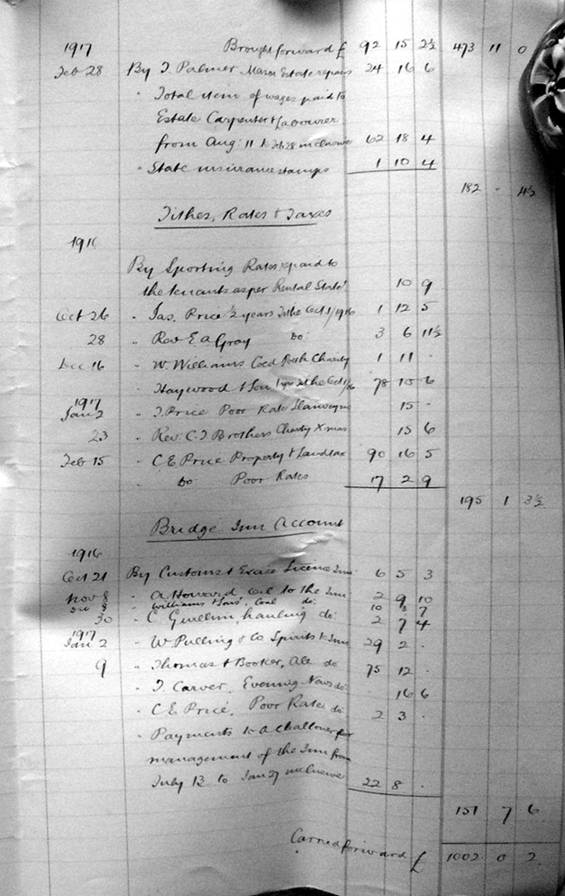 1917 Brought forward £ 92 15 2½ 473 11 0
Feb 28 By T. Palmer, Manor Estate repairs 24 16 6
" Total item of wages paid to
Estate Carpenter & Labourer
from Aug: 11 to Feb 28 inclusive 62 18 4
" State insurance stamps 1 10 4
182 - 4½
Tithes, Rates & Taxes
1916
By Sporting Rates repaid to
the tenants as per Rental Statet
10 9
Oct 26 " Jas. Price ½ years Tithe Oct 1/1916 1 12 5
28 " Rev E A Gray do: 3 6 11½
Dec 16 " W. Williams Coed Poeth Charity 1 11 -
" Haywood & Son Tithe Oct 1/16 78 10 6
1917
Jan 2 " T. Price Poor Rate 15 -
23 " Rev. C. T. Brothers Charity Xmas 15 6
Feb 15 " C E Price Property & Landtax 90 16 5
" Do Poor Rates 17 2 9
195 1 3½
Bridge Inn Account
1916
Oct 21 By Customs & Excise Licence Inn 6 5 3
Nov 8 " A. Howard coal to the Inn 2 9 10
Dec 8 " Williams & Sons, Coal do: 10 8 7
30 " C Gwillim hauling do: 2 7 4
1917
Jan 2 " W Pulling & Co Spirits to Inn 29 2 -
9 " Thomas & Booker, Ale do 75 12 -
" T. Carver, Evening News do: 16 6
" C E Price, Poor Rates do: 2 3 -
" Payments to A Challoner for
management of the Inn from
July 13 to Jan 27 inclusive 22 8 -
151 7 6
Carried forward £ 1002 0 2